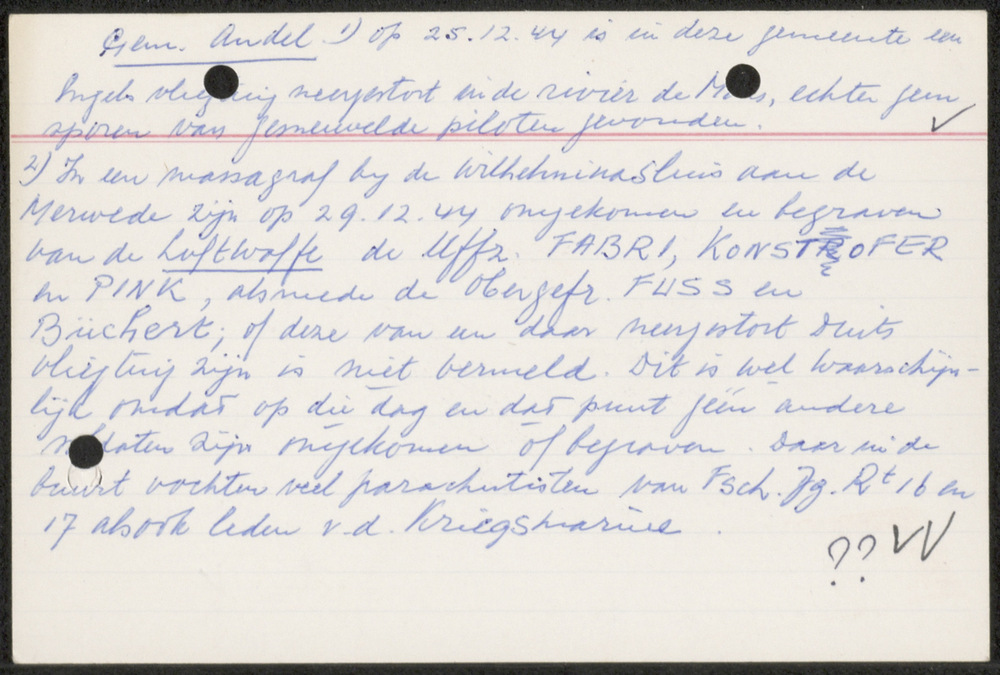 Gem. Andel. 1) op 25.12.44 is in deze gemeente een
Engels vliegtuig neergestort in de rivier de Maas, echter geen
sporen van gesneuvelde piloten gevonden. ✓
2) In een massagraf by de Wilhelminasluis aan de
Merwede zijn op 29.12.44 omgekomen en begraven
van de Luftwaffe de Uffz. FABRI, KONSTROFER
en PINK, alsmede de Obergefr. FUSS en
Büchert; of deze van een daar neergestort Duits
vliegtuig zijn is niet vermeld. Dit is wel waarschijn-
lijk omdat op die dag en dat punt géén andere
soldaten zijn omgekomen of begraven. Daar in de
buurt vochten veel parachutisten van Fsch. Jg. Rt 16 en
17 alsook leden v.d. Kriegsmarine.
?? VV